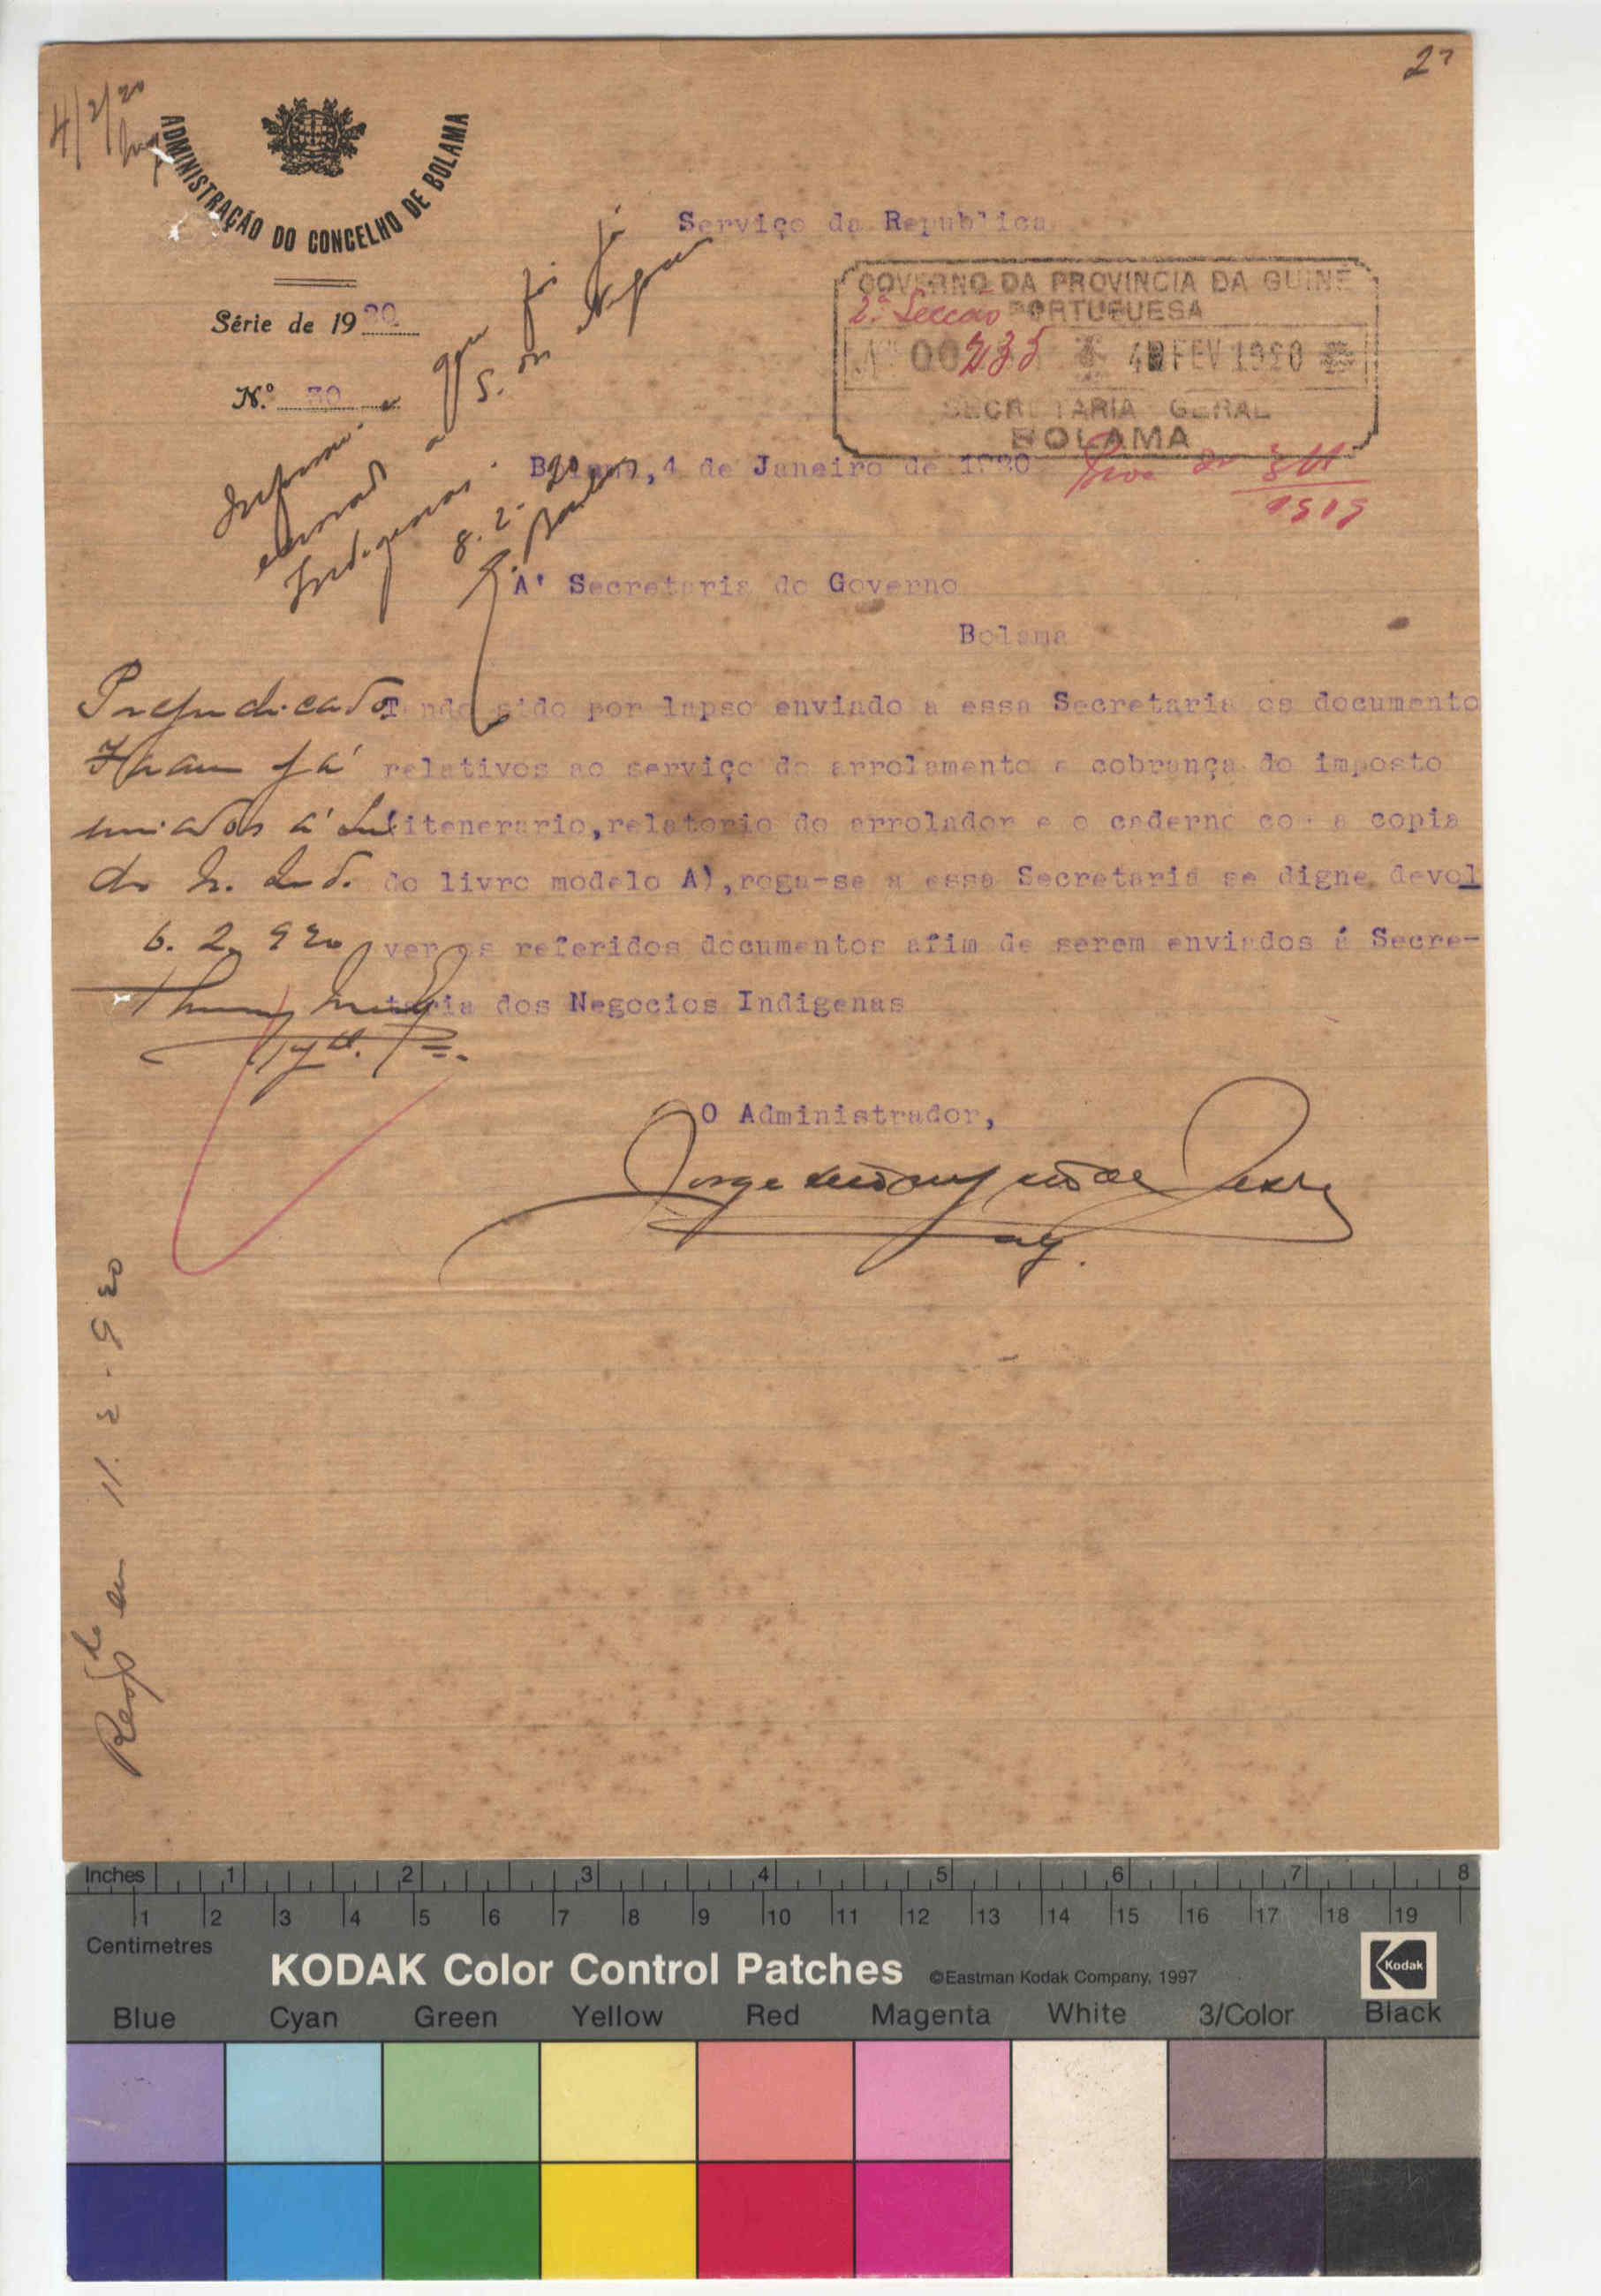 27
4/2/20
ADMINISTRAÇÃO DO CONCELHO DE BOLAMA
Série de 1920
N.º 30
Serviço da Republica
GOVERNO DA PROVINCIA DA GUINÉ
PORTUGUESA
2.ª Secção
Nº 00235 4 FEV 1920
SECRETARIA GERAL
BOLAMA
Informe que foi já
enviado a S. dos Negocios
Indigenas.
8.2.20
Bolama, 4 de Janeiro de 1920
1919
A' Secretaria do Governo
Bolama
Prejudicado
já
enviados á
do N. Ind.
6.2.920
Tendo sido por lapso enviado a essa Secretaria os documento
relativos ao serviço do arrolamento e cobrança do imposto
itenerario, relatorio do arrolador e o caderno com a copia
do livro modelo A), roga-se a essa Secretaria se digne devol
ver os referidos documentos afim de serem enviados á Secre-
taria dos Negocios Indigenas
O Administrador,
Jorge
Resp.do em 11.2.920
Inches 1 2 3 4 5 6 7 8
1 2 3 4 5 6 7 8 9 10 11 12 13 14 15 16 17 18 19
Centimetres
KODAK Color Control Patches ©Eastman Kodak Company, 1997 Kodak
Blue Cyan Green Yellow Red Magenta White 3/Color Black